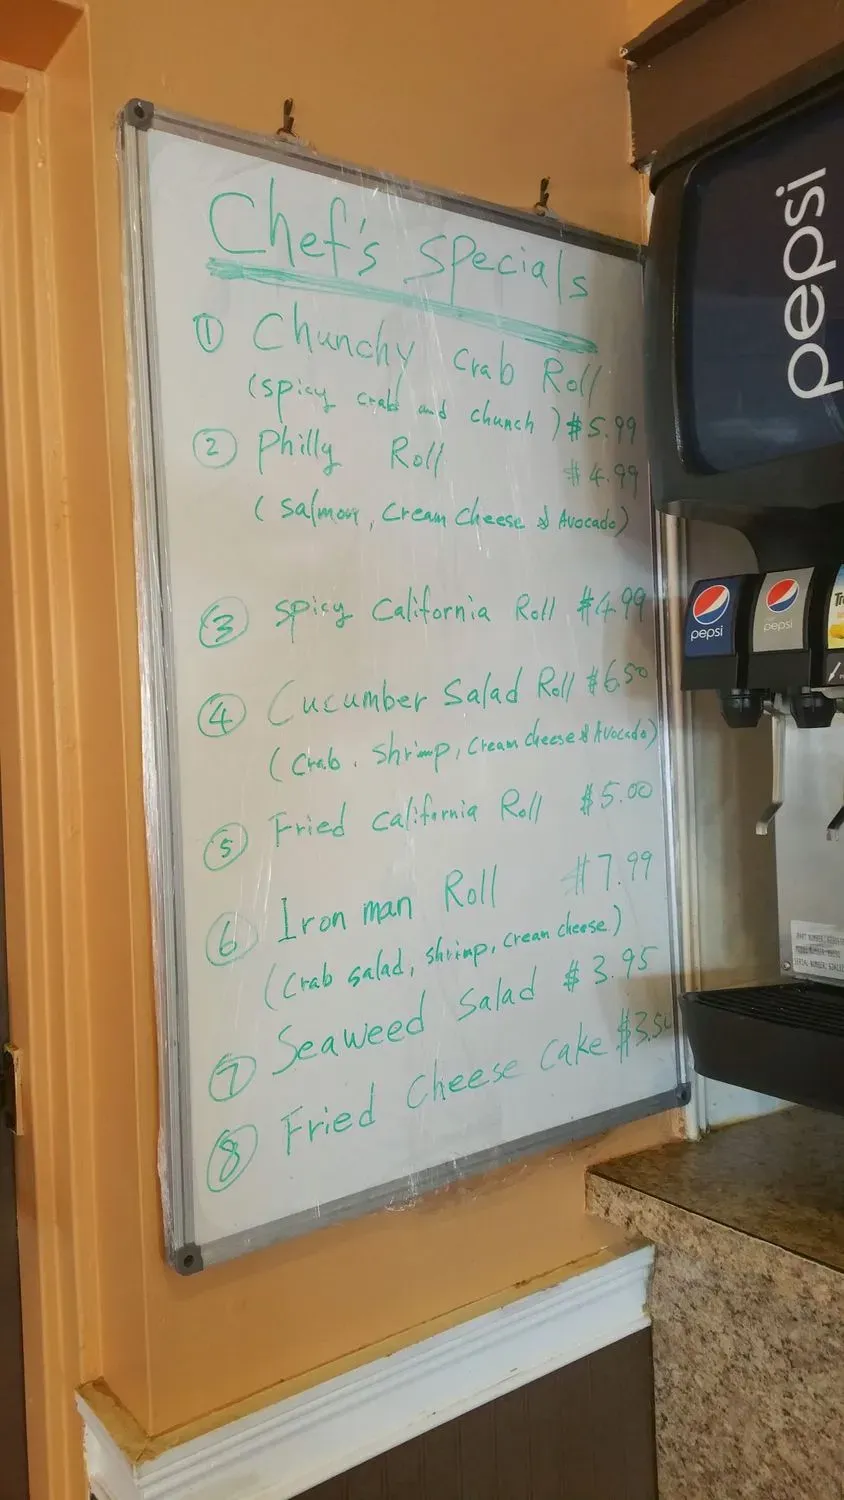 Chef's Specials
① Chunchy Crab Roll
(spicy crab and chunch) $5.99
② Philly Roll $4.99
(Salmon, Cream Cheese & Avocado)
③ Spicy California Roll $4.99
④ Cucumber Salad Roll $6.50
(Crab, Shrimp, Cream cheese & Avocado)
⑤ Fried California Roll $5.00
⑥ Iron man Roll $7.99
(Crab salad, shrimp, cream cheese)
⑦ Seaweed Salad $3.95
⑧ Fried Cheese Cake $3.50
pepsi
pepsi
pepsi